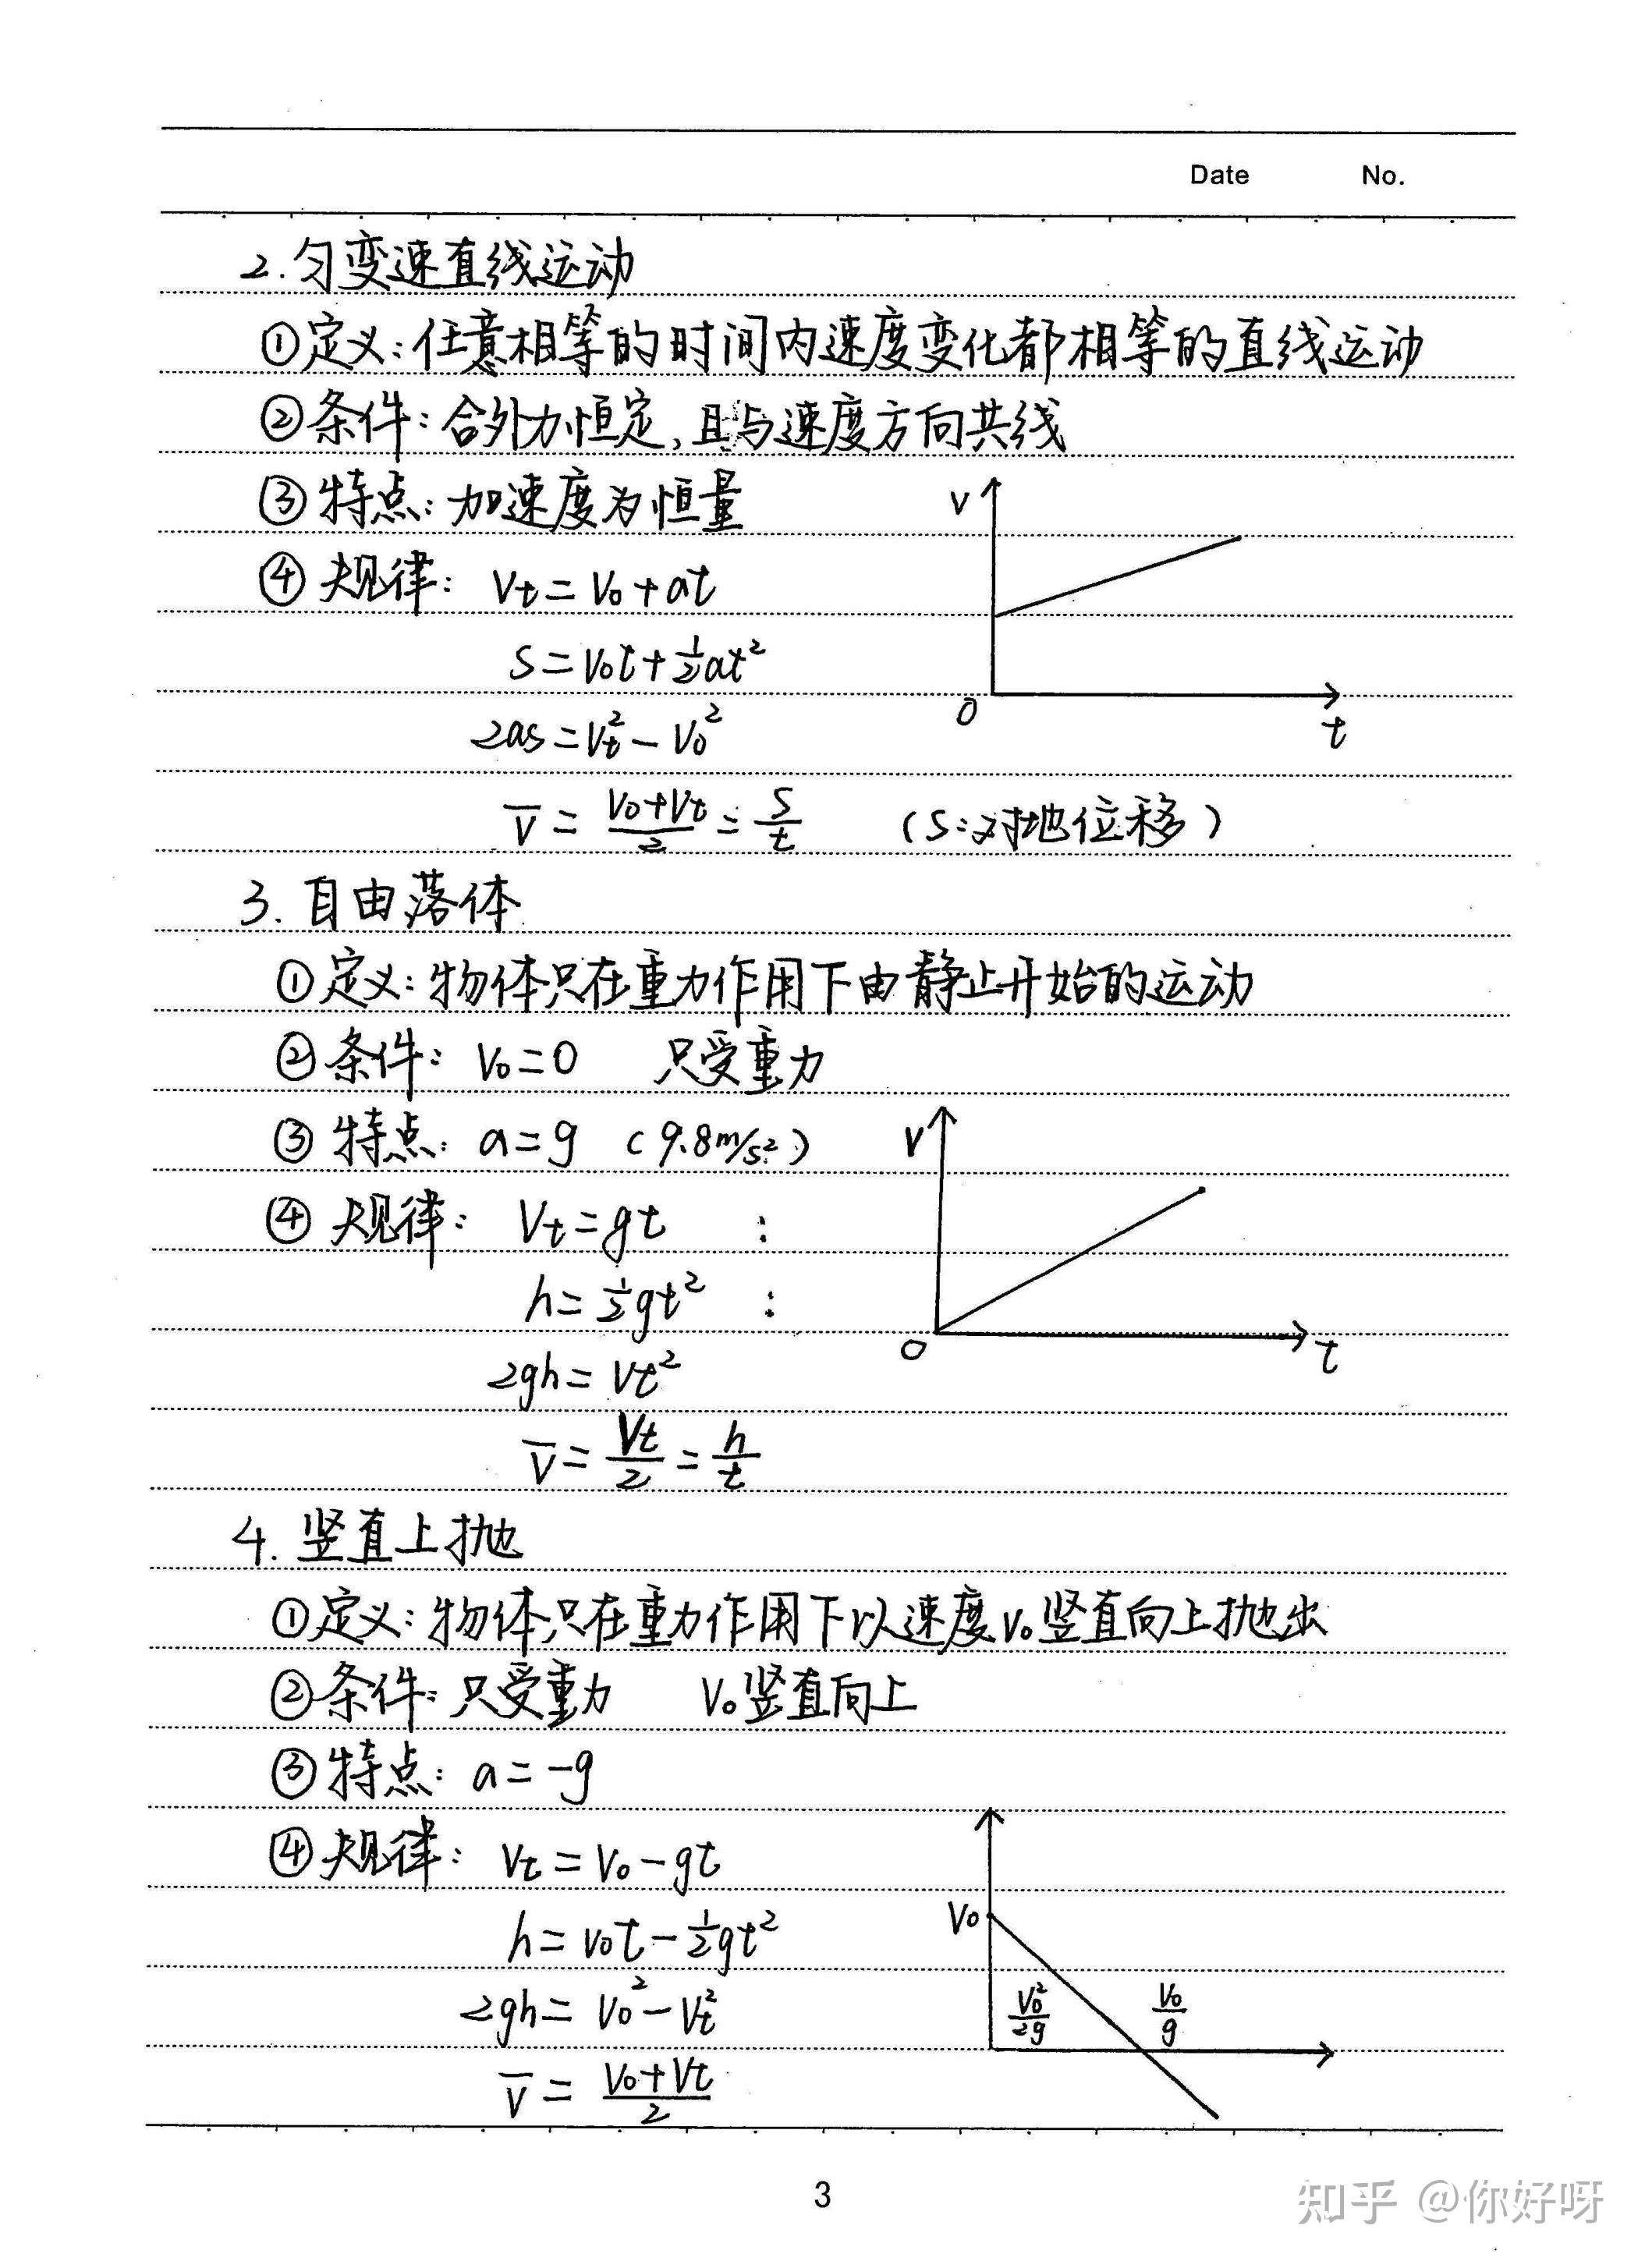 Date No.
2. 匀变速直线运动
①定义:任意相等的时间内速度变化都相等的直线运动
②条件:合外力恒定,且与速度方向共线
③特点:加速度为恒量
V
④规律: Vt=V₀+at
S=V₀t+½at²
0
t
2as=Vt²-V₀²
V̄=(V₀+Vt)/2=S/t (S:对地位移)
3. 自由落体
①定义:物体只在重力作用下由静止开始的运动
②条件: V₀=0 只受重力
③特点: a=g (9.8m/s²)
V
④规律: Vt=gt :
h=½gt² :
0
t
2gh=Vt²
V̄=Vt/2=h/t
4. 竖直上抛
①定义:物体只在重力作用下以速度V₀竖直向上抛出
②条件:只受重力 V₀竖直向上
③特点: a=-g
④规律: Vt=V₀-gt
V₀
h=V₀t-½gt²
2gh=V₀²-Vt²
V₀²/2g V₀/g
V̄=(V₀+Vt)/2
3
知乎 @你好呀